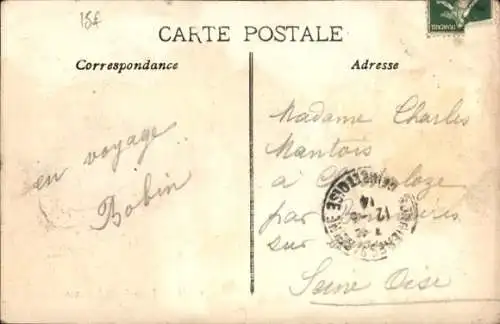 15f
CARTE POSTALE
Correspondance
Adresse
en voyage
Bobin
Madame Charles
Mantois
à
par
sur
Seine Oise
SEINE ET OISE
12
14